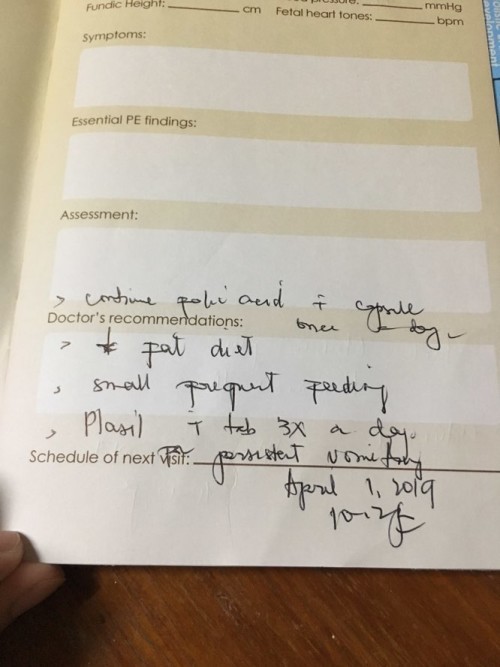 Fundic Height: cm Fetal heart tones: mmHg
bpm
Symptoms:
Essential PE findings:
Assessment:
> continue folic acid ī capsule
Doctor's recommendations: once a day
> ↓ fat diet
> small frequent feeding
> Plasil ī tab 3x a day.
Schedule of next visit: persistent vomiting
April 1, 2019